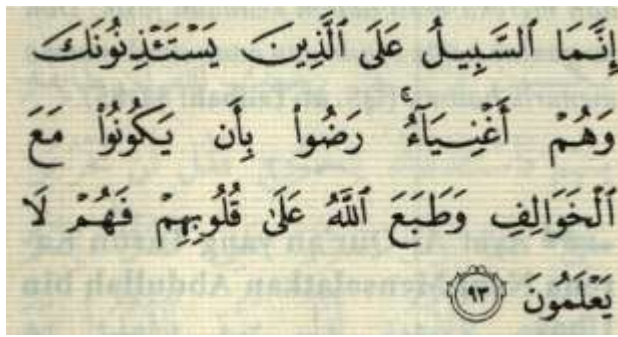 إِنَّمَا ٱلسَّبِيلُ عَلَى ٱلَّذِينَ يَسْتَـْٔذِنُونَكَ
وَهُمْ أَغْنِيَآءُ ۚ رَضُوا۟ بِأَن يَكُونُوا۟ مَعَ
ٱلْخَوَالِفِ وَطَبَعَ ٱللَّهُ عَلَىٰ قُلُوبِهِمْ فَهُمْ لَا
يَعْلَمُونَ ٩٣